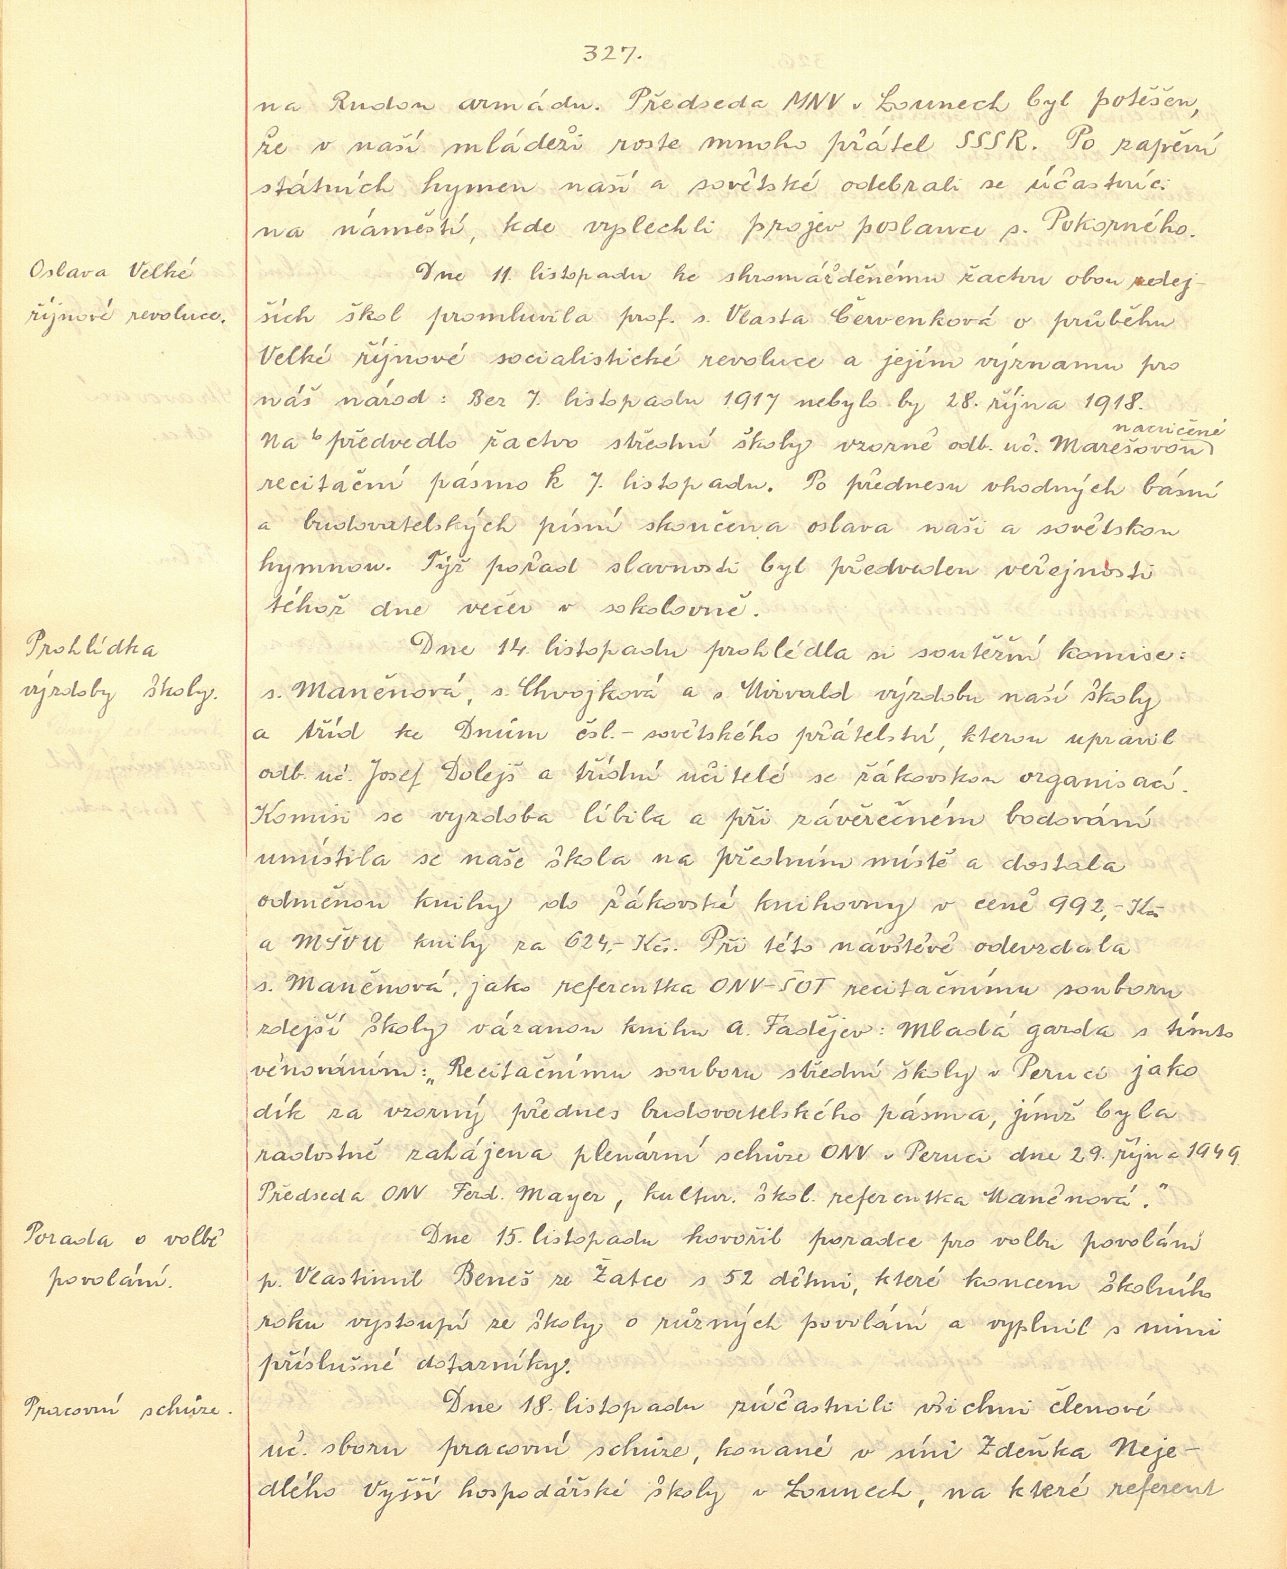 327.
na Rudou armádu. Předseda MNV v Lounech byl potěšen,
že v naší mládeži roste mnoho přátel SSSR. Po zapění
státních hymen naší a sovětské odebrali se účastníci
na náměstí, kde vyslechli projev poslance s. Pokorného.
Oslava Velké
říjnové revoluce.
Dne 11. listopadu ke shromážděnému žactvu obou zdej-
ších škol promluvila prof. s. Vlasta Červenková o průběhu
Velké říjnové socialistické revoluce a jejím významu pro
náš národ: Bez 7. listopadu 1917 nebylo by 28. října 1918.
nacvičené
Na to předvedlo žactvo střední školy vzorně odb. uč. Marešovou
recitační pásmo k 7. listopadu. Po přednesu vhodných básní
a budovatelských písní skončena oslava naši a sovětskou
hymnou. Týž pořad slavnosti byl předveden veřejnosti
téhož dne večer v sokolovně.
Prohlídka
výzdoby školy.
Dne 14. listopadu prohlédla si soutěžní komise:
s. Maněnová, s. Chvojková a s. Mirvald výzdobu naší školy
a tříd ke Dnům čsl.-sovětského přátelství, kterou upravil
odb. uč. Josef Dolejš a třídní učitelé se žákovskou organisací.
Komisi se vyzdoba líbila a při závěrečném bodování
umístila se naše škola na předním místě a dostala
odměnou knihy do žákovské knihovny v ceně 992,- Kčs
a MŠVU knihy za 624,- Kčs. Při této návštěvě odevzdala
s. Maněnová, jako referentka ONV-ŠOT recitačnímu souboru
zdejší školy vázanou knihu A. Fadějev: Mladá garda s tímto
věnováním: „Recitačnímu souboru střední školy v Peruci jako
dík za vzorný přednes budovatelského pásma, jímž byla
radostně zahájena plenární schůze ONV v Peruci dne 29. října 1949
Předseda ONV Ferd. Mayer, kultur. škol. referentka Maněnová."
Porada o volbě
povolání.
Dne 15. listopadu hovořil poradce pro volbu povolání
p. Vlastimil Beneš ze Žatce s 52 dětmi, které koncem školního
roku vystoupí ze školy o různých povolání a vyplnil s nimi
příslušné dotazníky.
Pracovní schůze.
Dne 18. listopadu zúčastnili všichni členové
uč. sboru pracovní schůze, konané v síni Zdeňka Neje-
dlého Vyšší hospodářské školy v Lounech, na které referent